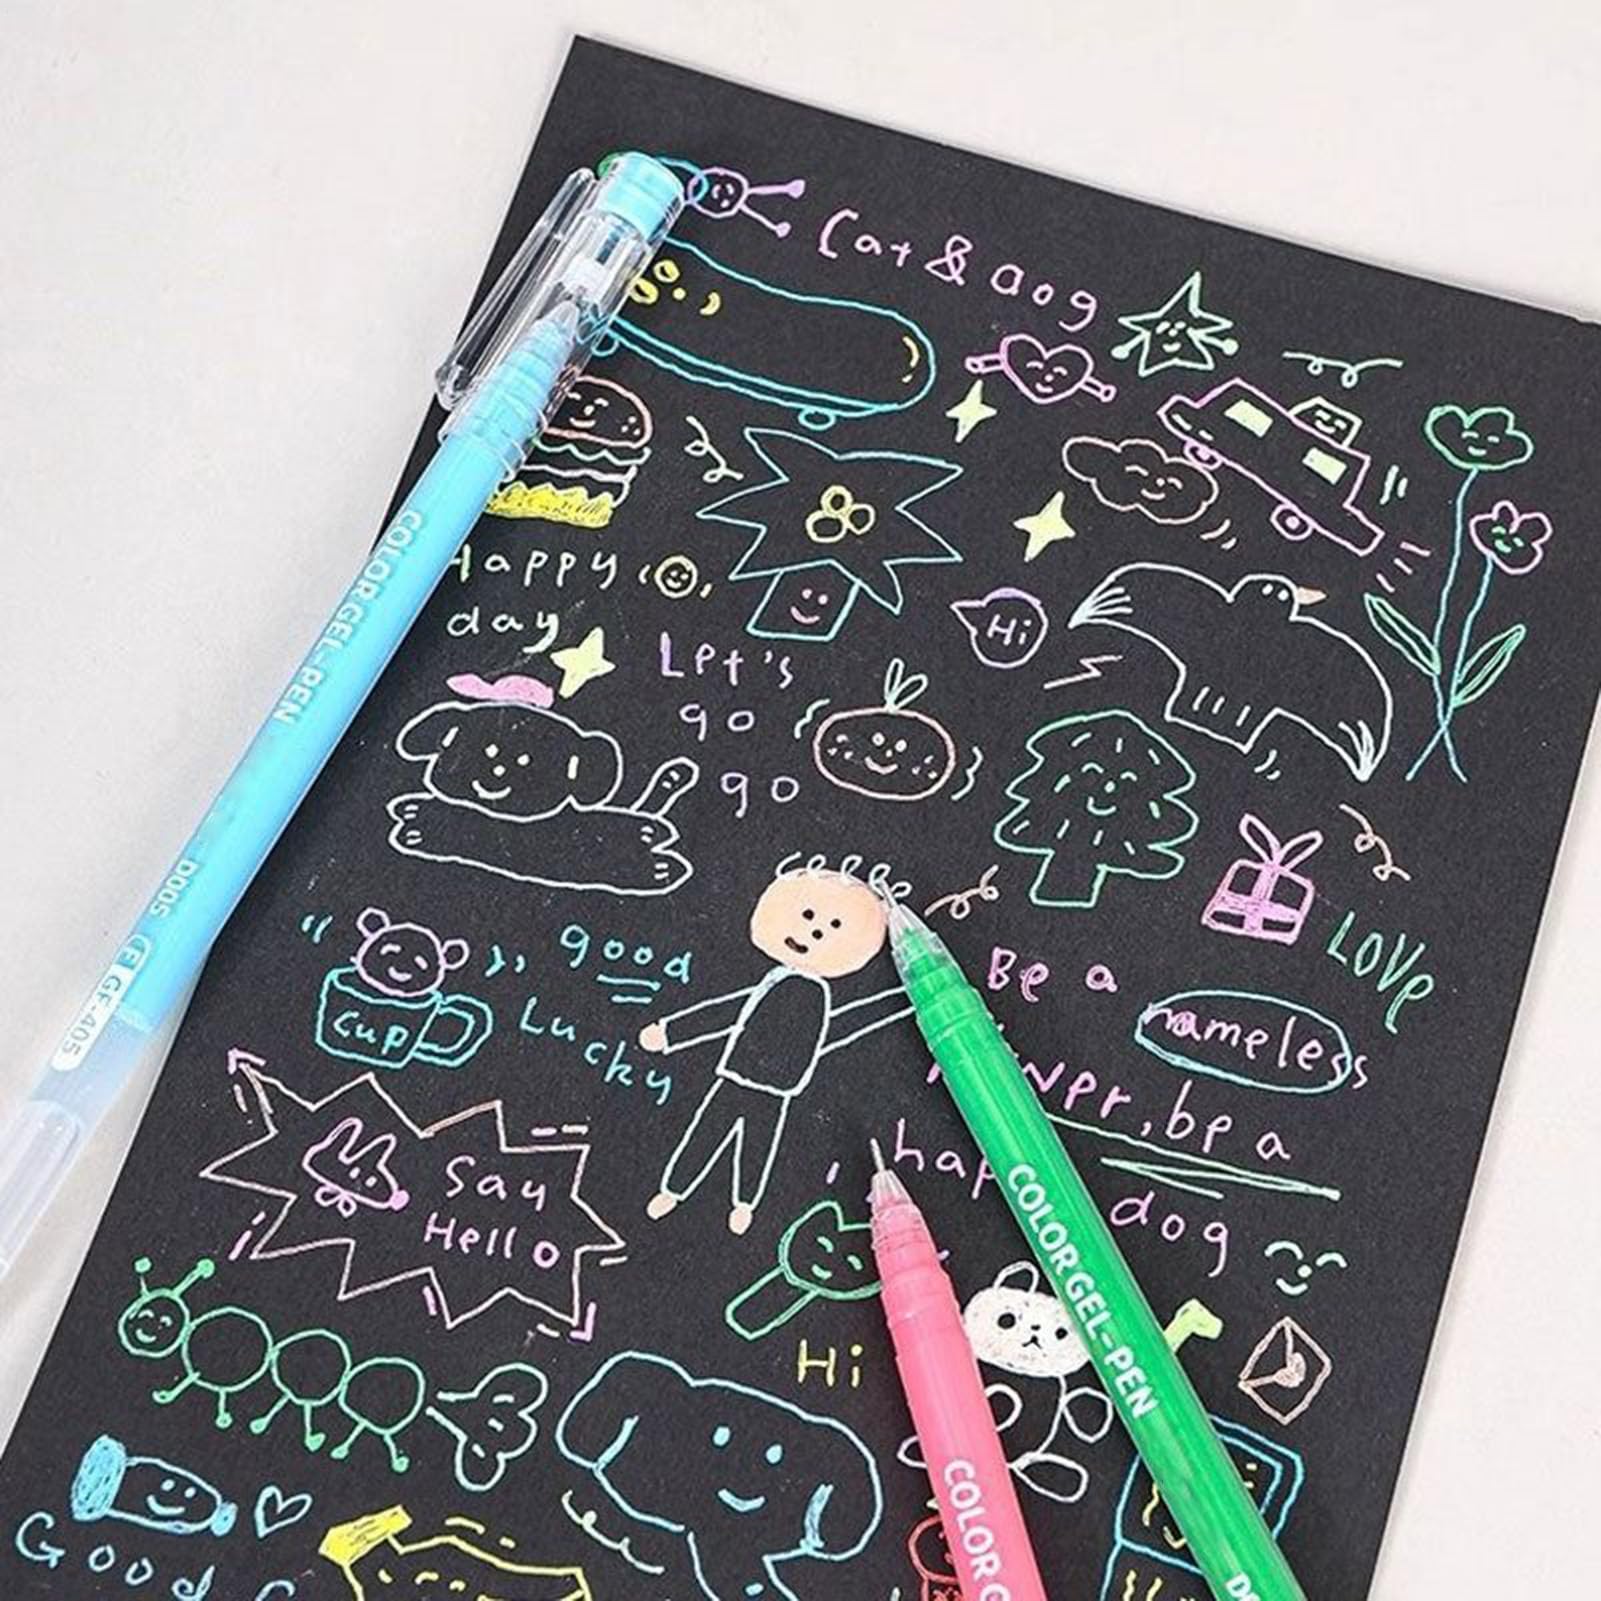 Cat & dog
Happy
day
Hi
Let's
go
go
LOVE
good
Lucky
cup
Be a
nameless
be a
dog
Say
Hello
Hi
Good
COLOR GEL-PEN
D005
GF-405
COLOR GEL-PEN
COLOR G